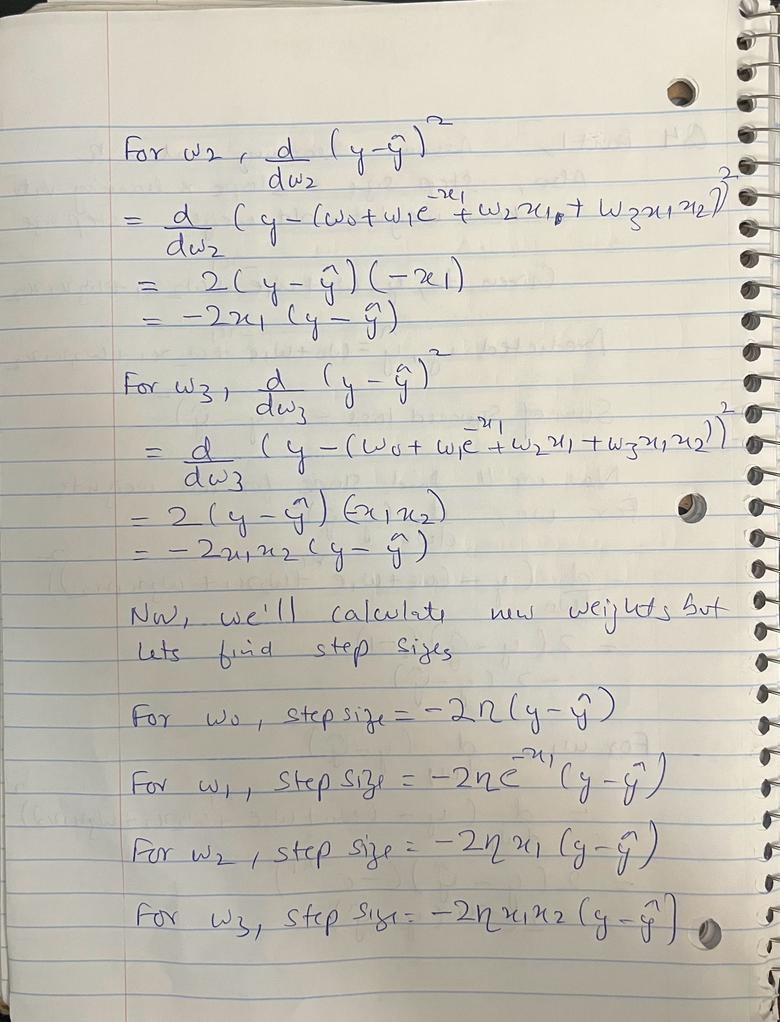 For w₂, d/dw₂ (y-ŷ)²
= d/dw₂ (y-(w₀+w₁e^-x₁+w₂x₁+w₃x₁x₂))²
= 2(y-ŷ)(-x₁)
= -2x₁(y-ŷ)
For w₃, d/dw₃ (y-ŷ)²
= d/dw₃ (y-(w₀+w₁e^-x₁+w₂x₁+w₃x₁x₂))²
= 2(y-ŷ)(-x₁x₂)
= -2x₁x₂(y-ŷ)
Now, we'll calculate new weights but
lets find step sizes
For w₀, step size = -2η(y-ŷ)
For w₁, step size = -2ηe^-x₁(y-ŷ)
For w₂, step size = -2ηx₁(y-ŷ)
For w₃, step size = -2ηx₁x₂(y-ŷ)